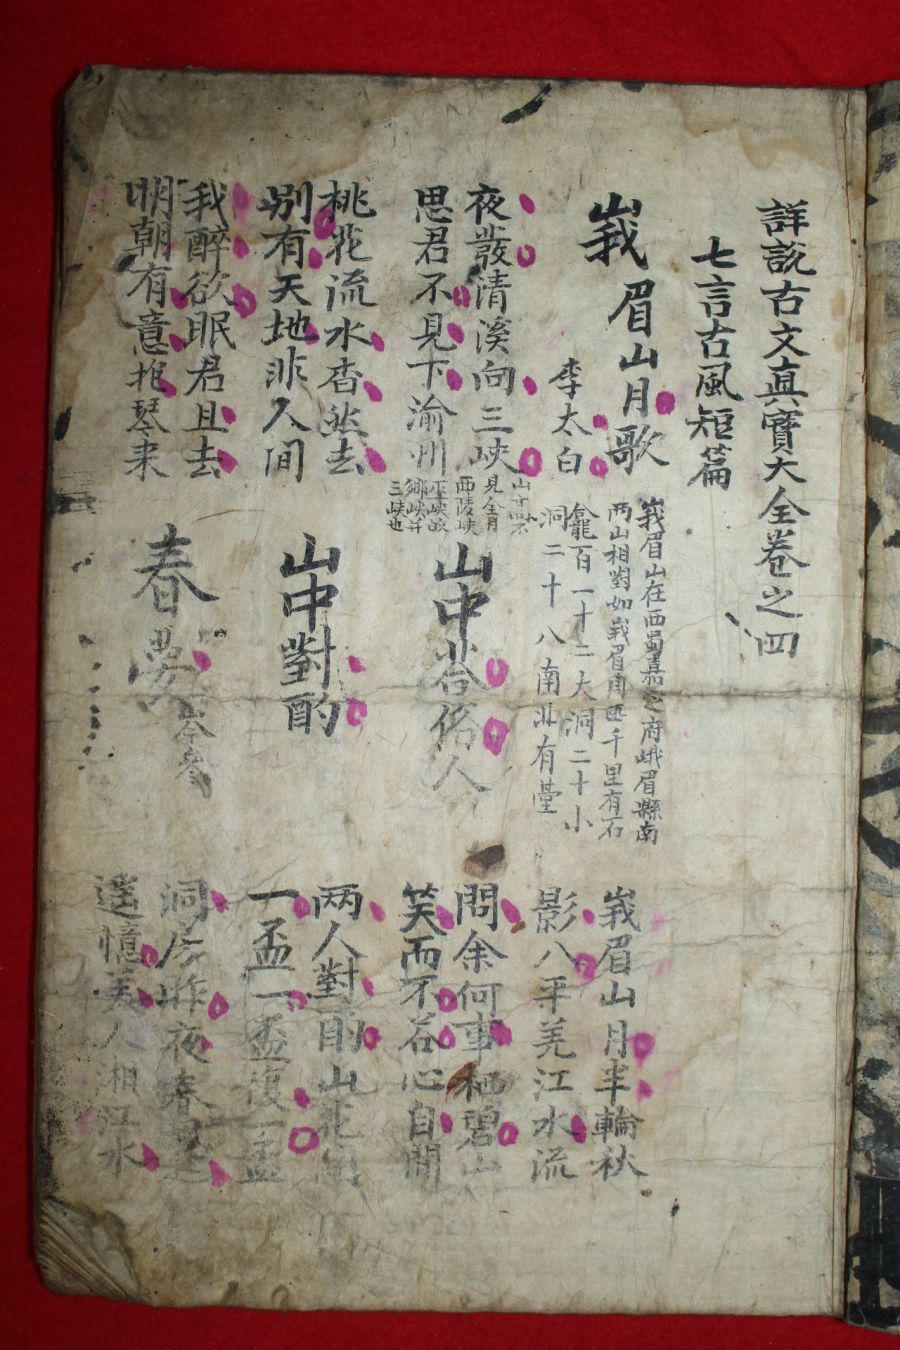 詳說古文眞寶大全卷之四
七言古風短篇
峩眉山月歌
李太白
峩眉山在西蜀嘉定府峨眉縣南
两山相對如峩眉周匝千里有石
龕百一十二大洞二十小
洞二十八南北有臺
峩眉山月半輪秋
影入平羌江水流
夜發清溪向三峽
思君不見下渝州
山高不
見全月
西陵峽
巫峽故
鄉峽并
三峽也
山中答俗人
問余何事栖碧山
笑而不答心自閒
桃花流水杳然去
別有天地非人间
山中對酌
两人對酌山花開
一盃一盃復一盃
我醉欲眠君且去
明朝有意抱琴来
春夢
岑參
洞房昨夜春風起
遥憶美人湘江水